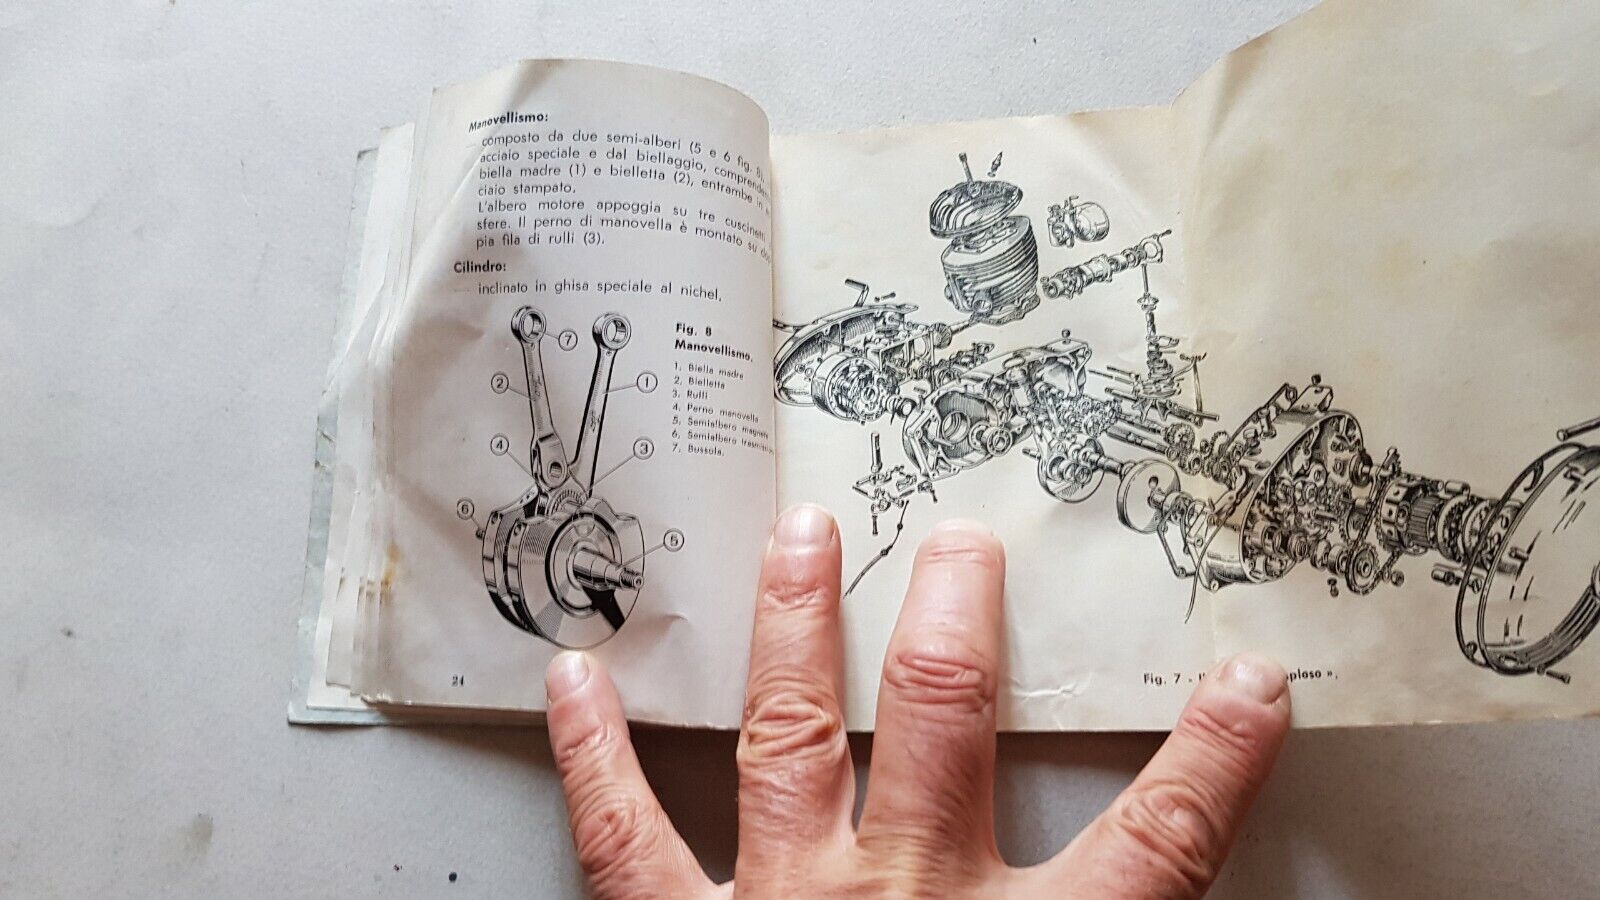 Manovellismo:
— composto da due semi-alberi (5 e 6 fig. 8),
acciaio speciale e dal biellaggio,
biella madre (1) e bielletta (2), entrambe in
ciaio stampato.
L'albero motore appoggia su tre cuscinetti
sfere. Il perno di manovella è montato su
pia fila di rulli (3).
Cilindro:
— inclinato in ghisa speciale al nichel,
Fig. 8
Manovellismo.
1. Biella madre
2. Bielletta
3. Rulli
4. Perno manovella
5. Semialbero magnete
6. Semialbero
7. Bussola.
7
2
1
4
3
6
5
24
Fig. 7 -
».